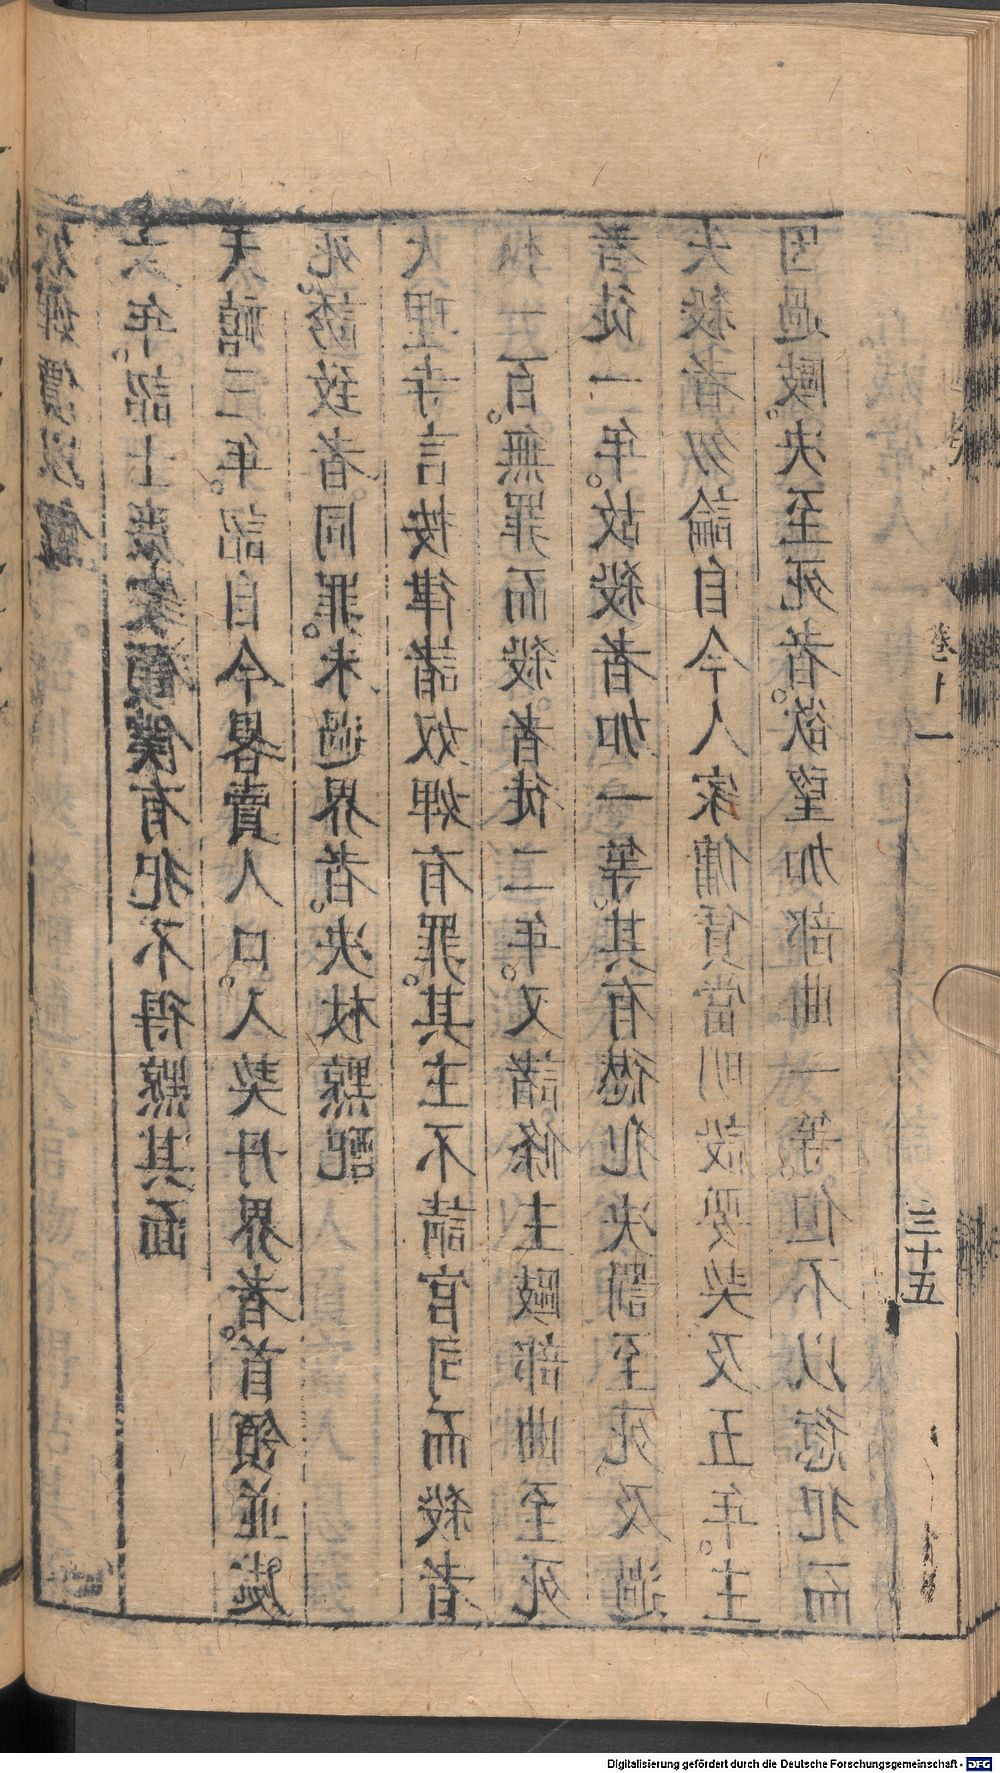 奴婢價以償
六年。詔士庶家雇僕有犯不得黥其面
天禧三年。詔自今畧賣人口。入契丹界者。首領並處
死。誘致者同罪。未過界者。决杖黥配
大理寺言按律諸奴婢有罪。其主不請官司而殺者
杖一百。無罪而殺。者徒二年。又諸條主毆部曲至死
者徒一年。故殺者加一等。其有愆犯决罰至死。及過
失殺者勿論自今人家傭賃當明設要契及五年。主
因過毆决至死者。欲望加部曲一等。但不以愆犯而
卷十一
三十五
Digitalisierung gefördert durch die Deutsche Forschungsgemeinschaft - DFG